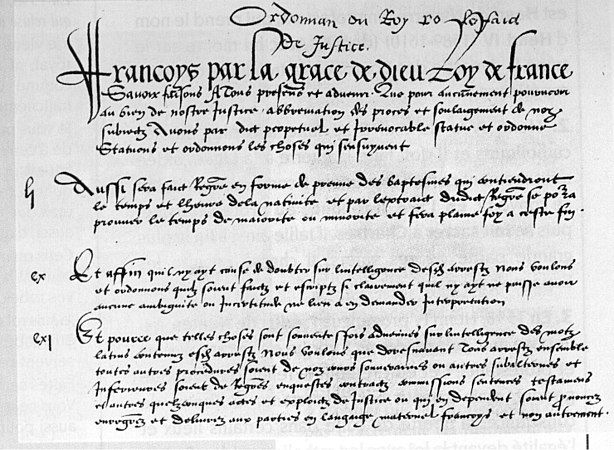 Ordonnan du Roy
de Justice.
Francoys par la grace de dieu Roy de france
Scavoir faisons A Tous presens et advenir. Que pour aucunement pourveoir
au bien de nostre Justice abbreviation des proces et soulaigement de noz
subiectz Avons par edict perpetuel et Irrevocable statue et ordonne
Statuons et ordonnons les choses qui sensuyvent
lj Aussi sera faict Regre en forme de preuve des baptesmes qui contiendront
le temps et lheure de la nativite et par lextraict dudict Regre se pora
prouver le temps de maiorite ou minorite et fera plaine foy a ceste fin.
cx Et affin quil ny ayt cause de doubter sur lintelligence desd arrestz Nous voulons
et ordonnons quilz soient faictz et escriptz si clairement quil ny ayt ne puisse avoir
aucune ambiguite ou Incertitude ne lieu a en demander Interpretation
cxj Et pource que telles choses sont souventesfois advenues sur lintelligence des motz
latins contenuz esd arrestz Nous voulons que doresnavant Tous arrestz ensemble
toutes autres procedures soient de noz cours souveraines ou autres subalternes et
Inferieures soient de Regres enquestes contractz commissions sentences testamens
et autres quelzconques actes et exploictz de Justice ou qui en dependent soient prononcez
enregrez et delivrez aux parties en langaige maternel francoys et non autrement.